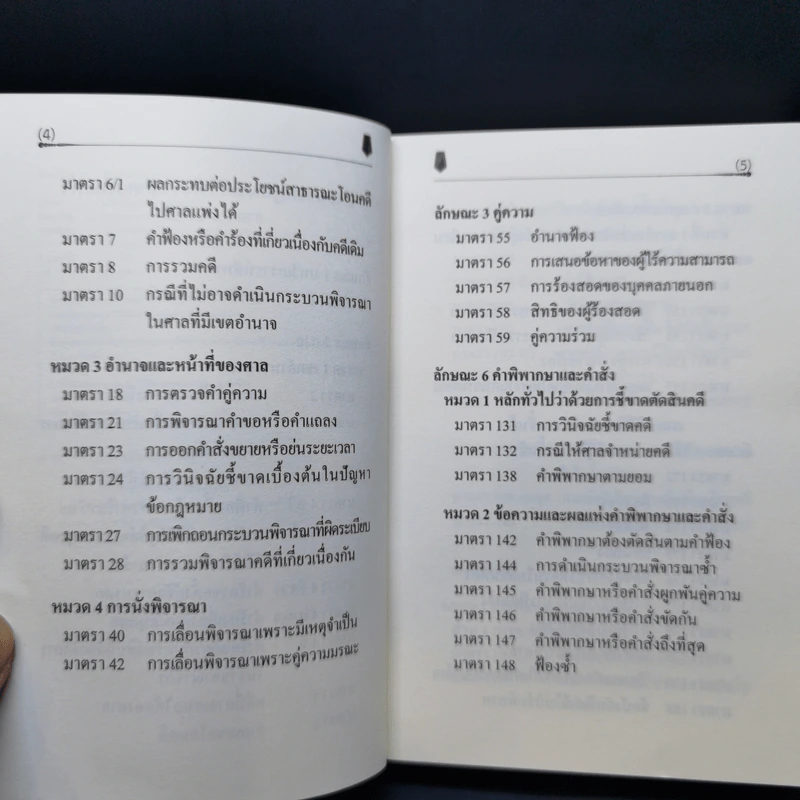 (4)
มาตรา 6/1 ผลกระทบต่อประโยชน์สาธารณะโอนคดี
ไปศาลแพ่งได้
มาตรา 7 คำฟ้องหรือคำร้องที่เกี่ยวเนื่องกับคดีเดิม
มาตรา 8 การรวมคดี
มาตรา 10 กรณีที่ไม่อาจดำเนินกระบวนพิจารณา
ในศาลที่มีเขตอำนาจ
หมวด 3 อำนาจและหน้าที่ของศาล
มาตรา 18 การตรวจคำคู่ความ
มาตรา 21 การพิจารณาคำขอหรือคำแถลง
มาตรา 23 การออกคำสั่งขยายหรือย่นระยะเวลา
มาตรา 24 การวินิจฉัยชี้ขาดเบื้องต้นในปัญหา
ข้อกฎหมาย
มาตรา 27 การเพิกถอนกระบวนพิจารณาที่ผิดระเบียบ
มาตรา 28 การรวมพิจารณาคดีที่เกี่ยวเนื่องกัน
หมวด 4 การนั่งพิจารณา
มาตรา 40 การเลื่อนพิจารณาเพราะมีเหตุจำเป็น
มาตรา 42 การเลื่อนพิจารณาเพราะคู่ความมรณะ
(5)
ลักษณะ 3 คู่ความ
มาตรา 55 อำนาจฟ้อง
มาตรา 56 การเสนอข้อหาของผู้ไร้ความสามารถ
มาตรา 57 การร้องสอดของบุคคลภายนอก
มาตรา 58 สิทธิของผู้ร้องสอด
มาตรา 59 คู่ความร่วม
ลักษณะ 6 คำพิพากษาและคำสั่ง
หมวด 1 หลักทั่วไปว่าด้วยการชี้ขาดตัดสินคดี
มาตรา 131 การวินิจฉัยชี้ขาดคดี
มาตรา 132 กรณีให้ศาลจำหน่ายคดี
มาตรา 138 คำพิพากษาตามยอม
หมวด 2 ข้อความและผลแห่งคำพิพากษาและคำสั่ง
มาตรา 142 คำพิพากษาต้องตัดสินตามคำฟ้อง
มาตรา 144 การดำเนินกระบวนพิจารณาซ้ำ
มาตรา 145 คำพิพากษาหรือคำสั่งผูกพันคู่ความ
มาตรา 146 คำพิพากษาหรือคำสั่งขัดกัน
มาตรา 147 คำพิพากษาหรือคำสั่งถึงที่สุด
มาตรา 148 ฟ้องซ้ำ